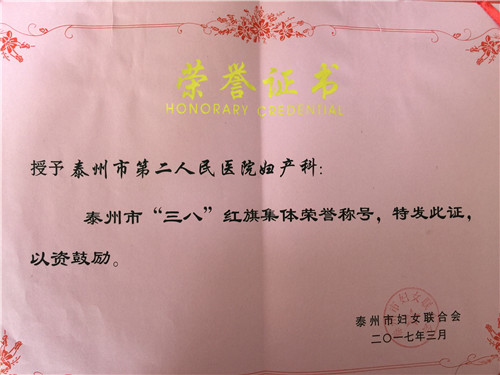 荣誉证书
HONORARY CREDENTIAL
授予泰州市第二人民医院妇产科：
泰州市“三八”红旗集体荣誉称号，特发此证，
以资鼓励。
泰州市妇女联合会
二〇一七年三月